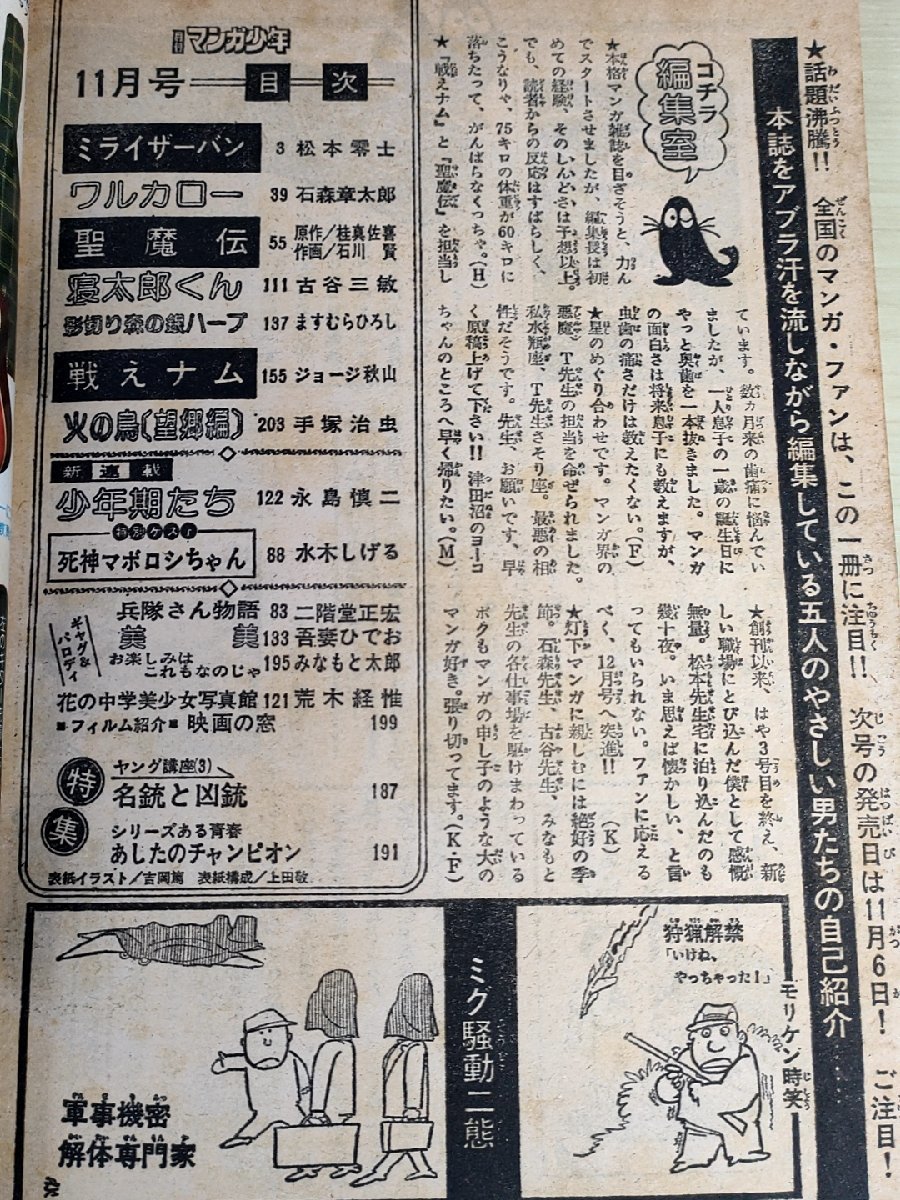 ★話題沸騰!! 全国のマンガ・ファンは、この一冊に注目!! 次号の発売日は11月6日! ご注目!
本誌をアブラ汗を流しながら編集している五人のやさしい男たちの自己紹介
コチラ
編集室
★本格マンガ雑誌を目ざそうと、力ん
でスタートさせましたが、編集長は初
めての経験、そのしんどさは予想以上。
でも、読者からの反応はすばらしく、
こうなりゃ、75キロの体重が60キロに
落ちたって、がんばらなくっちゃ。(H)
★『戦えナム』と『聖魔伝』を担当し
ています。数カ月来の歯痛に悩んでい
ましたが、一人息子の一歳の誕生日に
やっと奥歯を一本抜きました。マンガ
の面白さは将来息子にも教えますが、
虫歯の痛さだけは教えたくない。(F)
★星のめぐり合わせです。マンガ界の
悪魔、T先生の担当を命ぜられました。
私水瓶座、T先生さそり座。最悪の相
性だそうです。先生、お願いです、早
く原稿上げて下さい!! 津田沼のヨーコ
ちゃんのところへ早く帰りたい。(M)
★創刊以来、はや3号目を終え、新
しい職場にとび込んだ僕として感慨
無量。松本先生宅に泊り込んだのも
幾十夜。いま思えば懐かしい、と言
ってもいられない。ファンに応える
べく、12月号へ突進!! (K)
★灯下マンガに親しむには絶好の季
節。石森先生、古谷先生、みなもと
先生の各仕事場を駆けまわっている
ボクもマンガの申し子のような大の
マンガ好き。張り切ってます。(K・F)
月刊マンガ少年
11月号 目次
ミライザーバン 3 松本零士
ワルカロー 39 石森章太郎
聖魔伝 55 原作/桂真佐喜
作画/石川 賢
寝太郎くん 111 古谷三敏
影切り森の銀ハープ 137 ますむらひろし
戦えナム 155 ジョージ秋山
火の鳥(望郷編) 203 手塚治虫
新連載
少年期たち 122 永島慎二
特別ゲスト
死神マボロシちゃん 88 水木しげる
ギャグ&パロディ
兵隊さん物語 83 二階堂正宏
美 美 133 吾妻ひでお
お楽しみは
これもなのじゃ 195 みなもと太郎
花の中学美少女写真館 121 荒木経惟
■フィルム紹介■ 映画の窓 199
特集
ヤング講座(3)
名銃と凶銃 187
シリーズある青春
あしたのチャンピオン 191
表紙イラスト/吉岡篤 表紙構成/上田敬
モリケン時笑
狩猟解禁
「いけね、
やっちゃった!」
ミグ騒動二態
軍事機密
解体専門家